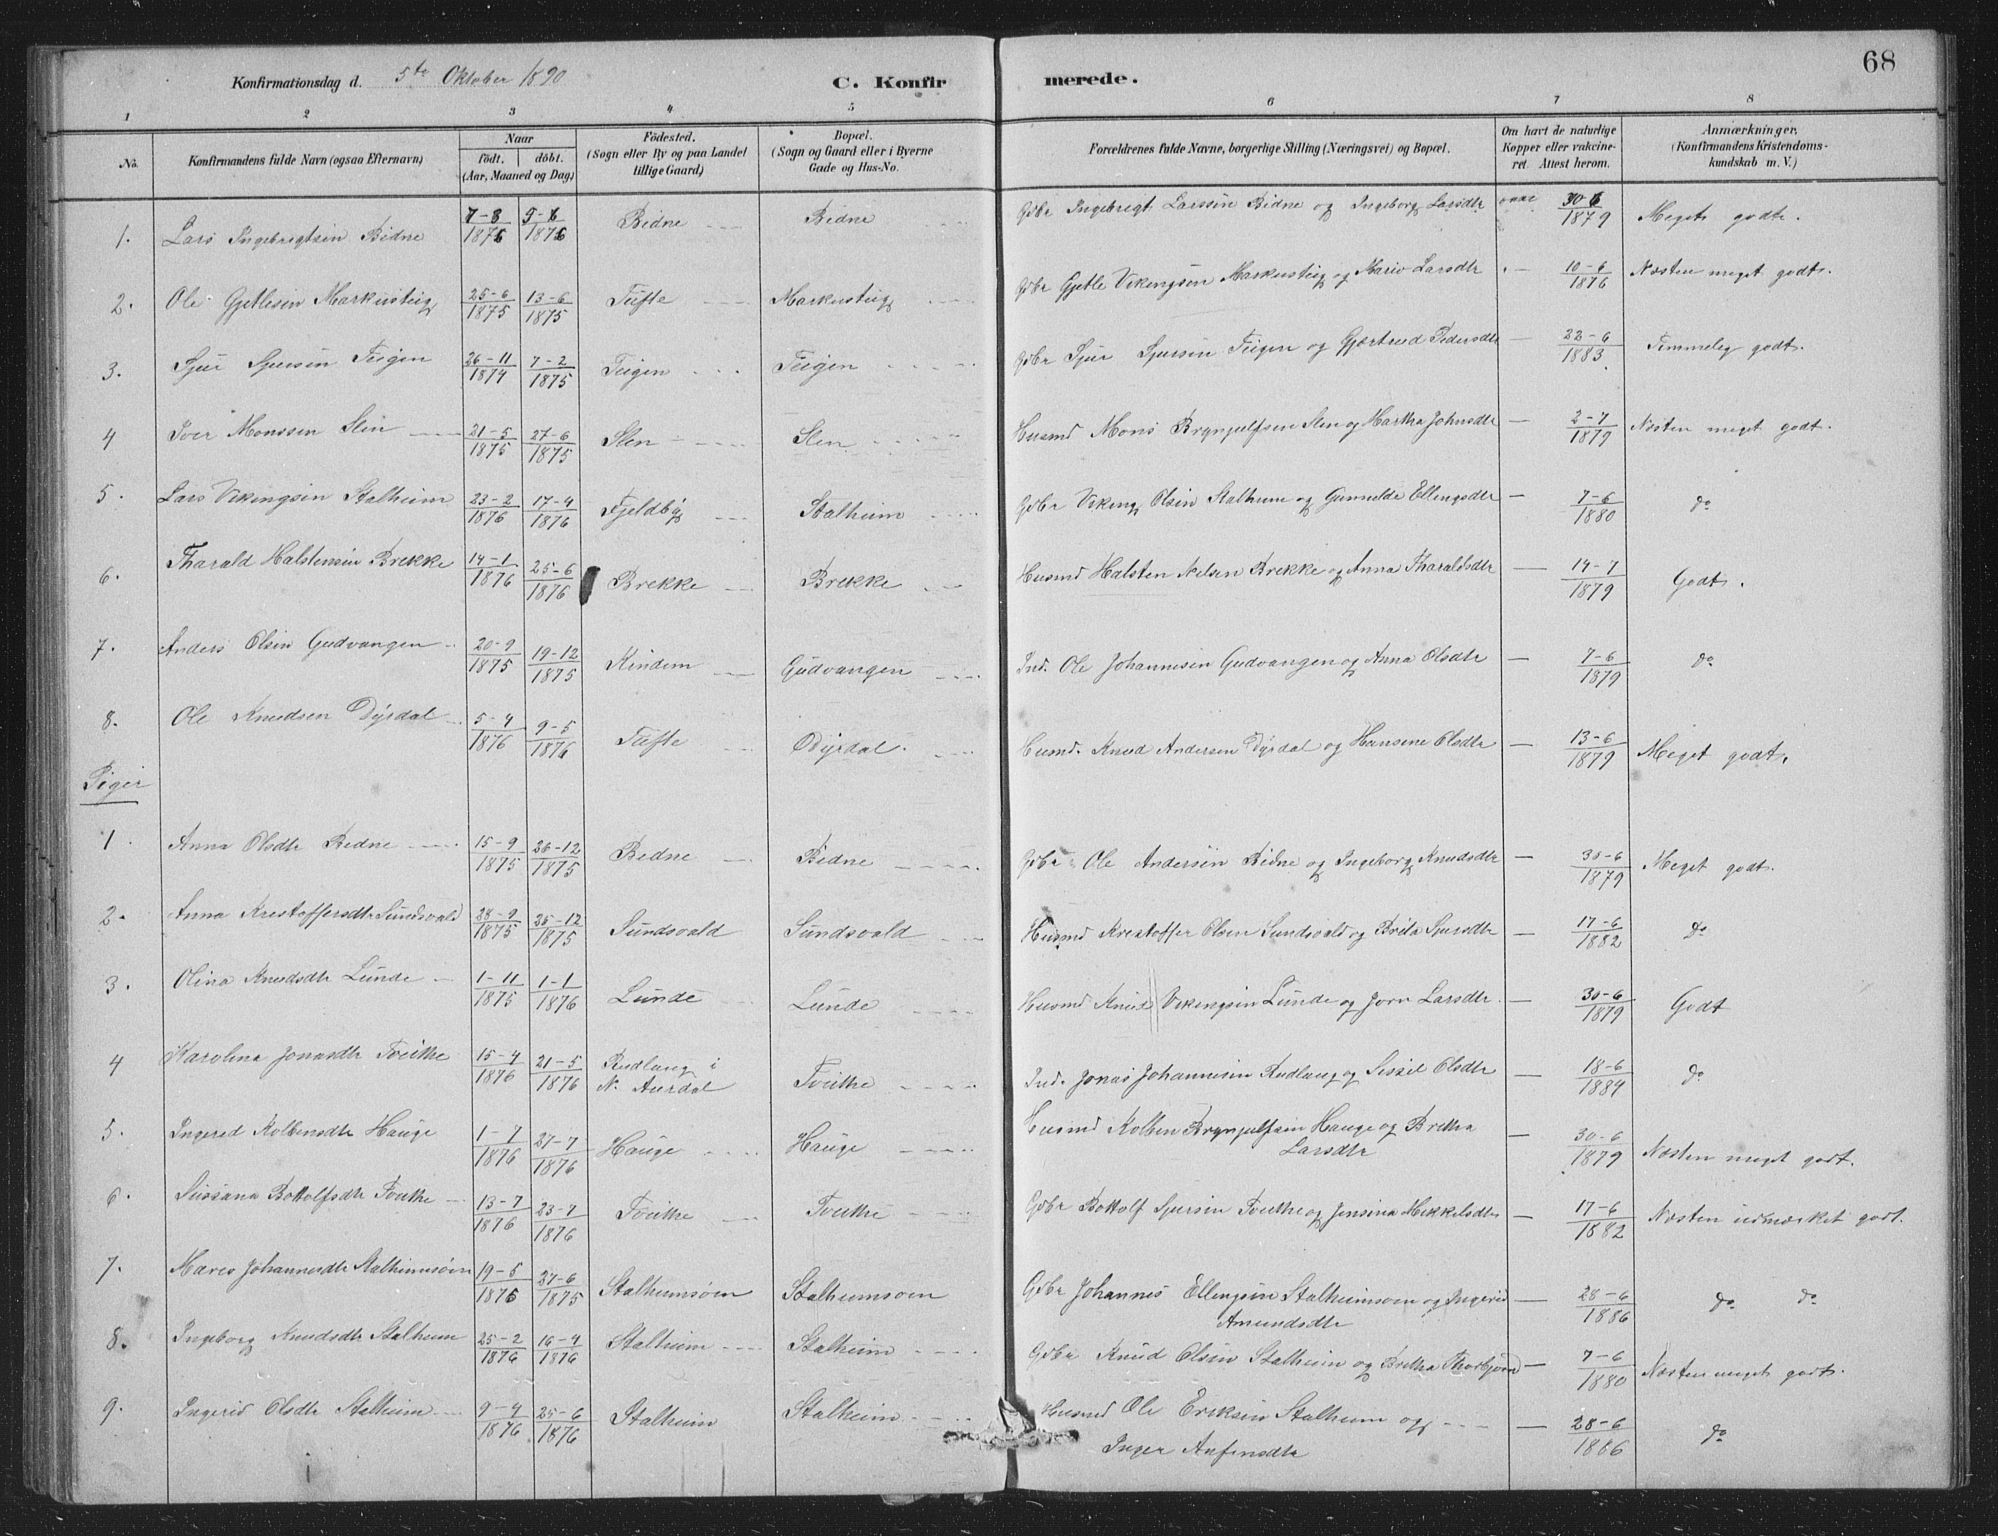 68
Konfirmationsdag d. 5te Oktober 1890 C. Konfirmerede.
1 2 3 4 5 6 7 8
No. Konfirmandens fulde Navn (ogsaa Efternavn) Naar födt. döbt. (Aar, Maaned og Dag) Födested. (Sogn eller By og paa Landet tillige Gaard) Bopæl. (Sogn og Gaard eller i Byerne Gade og Hus-No. Forældrenes fulde Navne, borgerlige Stilling (Næringsvei) og Bopæl. Om havt de naturlige Kopper eller vakcineret. Attest herom. Anmærkninger, (Konfirmandens Kristendomskundskab m. V.)
1. Lars Ingebrigtsen Bidne 7-8 1875 Bidne Bidne Gdbr Ingebrigt Larssin Bidne og Ingeborg Larsdtr vacc 30-6 1879 Meget godt.
2. Ole Gjetlesin Markusteig 25-6 1875 13-6 1875 Tufte Markusteig Gdbr Gjetle Vikengsin Markusteig og Mario Larsdtr - 10-6 1876 Næsten meget godt.
3. Sjur Sjursin Teigen 26-11 1874 7-2 1875 Teigen Teigen Gdbr Sjur Sjursin Teigen og Gjertrud Pedersdtr 22-6 1883 Temmeleg godt.
4 Iver Monssen Slen 21-5 1875 27-6 1875 Slen Slen Husmd Mons Brynjulfsen Slen og Martha Johnsdtr - 2-7 1879 Næsten meget godt.
5. Lars Vekengsin Stalheim 23-2 1876 17-4 1876 Fjeldbÿ Stalheim Gdbr Vekeng Olsin Stalheim og Gunnelde Ellingsdtr - 7-6 1880 do
6. Tharald Halstensin Brekke 14-1 1876 25-6 1876 Brekke Brekke Husmd Halsten Nelsen Brekke og Anna Tharaldsdtr - 14-7 1879 Godt.
7. Anders Olsin Gudvangen 20-9 1875 19-12 1875 Kindem Gudvangen Ind. Ole Johannesin Gudvangen og Anna Olsdtr - 7-6 1879 do
8. Ole Knudsen Dÿrdal 5-4 1876 9-5 1876 Tufte Dÿrdal. Husmd. Knud Andersen Dÿrdal og Hansine Olsdtr - 13-6 1879 Meget godt.
Piger
1 Anna Olsdtr Bidne 15-9 1875 26-12 1875 Bidne Bidne Gdbr Ole Andersin Bidne og Ingeborg Knudsdtr - 30-6 1879 Meget godt.
2. Anna Krestoffersdtr Sundsvald 28-9 1875 25-12 1875 Sundsvald Sundsvald Husmd Krestoffer Olsen Sundsvald og Brita Sjursdtr - 17-6 1882 do
3. Olina Knudsdtr Lunde 1-11 1875 1-1 1876 Lunde Lunde Husmd Knud Vekengsin Lunde og Jorn Larsdtr - 30-6 1879 Godt
4 Karolina Jonasdtr Tvithe 15-4 1876 21-5 1876 Rudlang i N. Aurdal Tvithe Ind. Jonas Johannesin Rudlang og Sissel Olsdtr - 18-6 1884 do
5. Ingered Kolbensdtr Hauge 1-7 1876 27-7 1876 Hauge Hauge Husmd Kolben Brynjulfsin Hauge og Britha Larsdtr - 30-6 1879 Næsten meget godt.
6. Sussana Bottolfsdtr Tvithe 13-7 1876 23-7 1876 Tvithe Tvithe Gdbr Bottolf Sjursin Tvithe og Jensina Mikkelsdtr - 17-6 1882 Næsten udmærket godt.
7. Maren Johannesdtr Stalheimsøen 19-5 27-6 1875 Stalheimsøen Stalheimsøen Gdbr Johannes Ellengsin Stalheimsøen og Ingerid Amundsdtr - 28-6 1886 do do
8. Ingeborg Knudsdtr Stalheim 25-2 1876 16-4 1876 Stalheim Stalheim Gdbr Knud Olsin Stalheim og Britha Thorbjørn - 7-6 1880 Næsten meget godt.
9. Ingerid Olsdtr Stalheim 9-4 1876 25-6 1876 Stalheim Stalheim Husmd Ole Eriksin Stalheim og Inger Anfensdtr - 28-6 1886 do